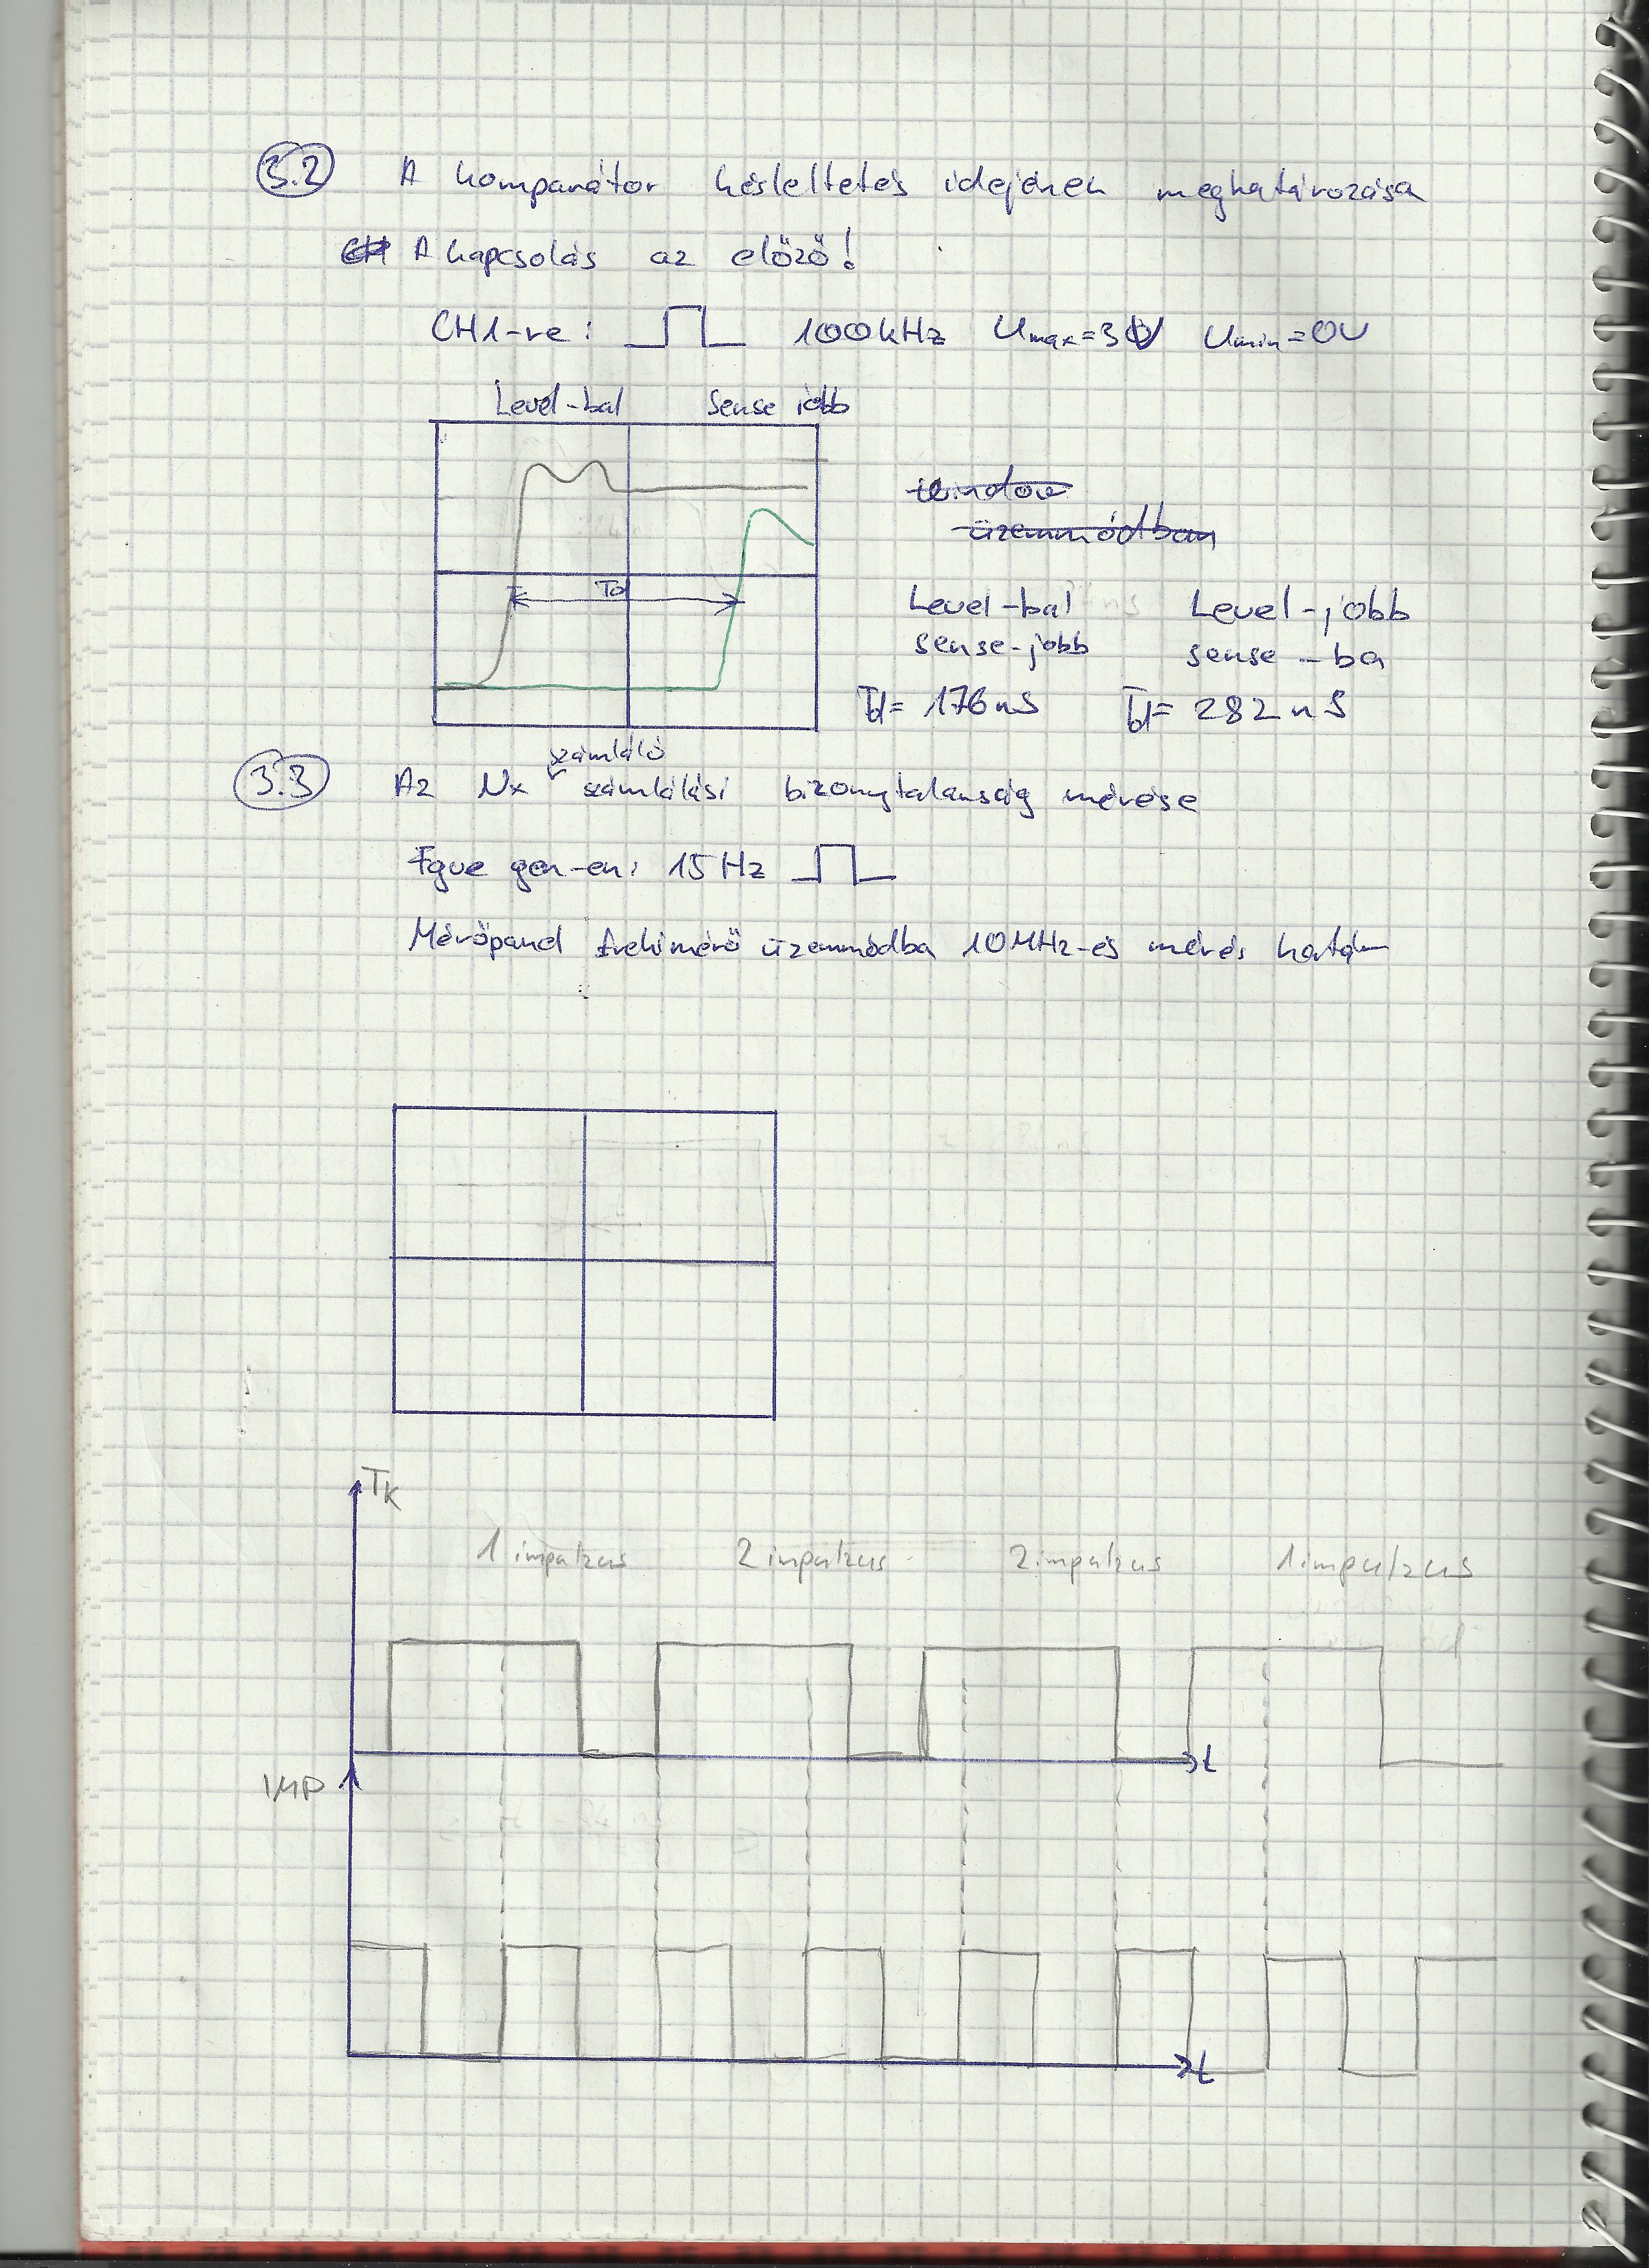 3.2 A komparátor késleltetés idejének meghatározása
A kapcsolás az előző!
CH1-re: 100kHz Umax=3V Umin=0V
Level-bal Sense jobb
Window
üzemmódban
Td
Level-bal Level-jobb
sense-jobb sense-ba
Td= 176nS Td= 282nS
számláló
3.3 Az Nx számlálási bizonytalanság mérése
Fgve gen-en: 15Hz
Mérőpanel frekimérő üzemmódba 10MHz-es mérés határ
TK
1 impulzus 2 impulzus 2 impulzus 1 impulzus
t
IMP
t